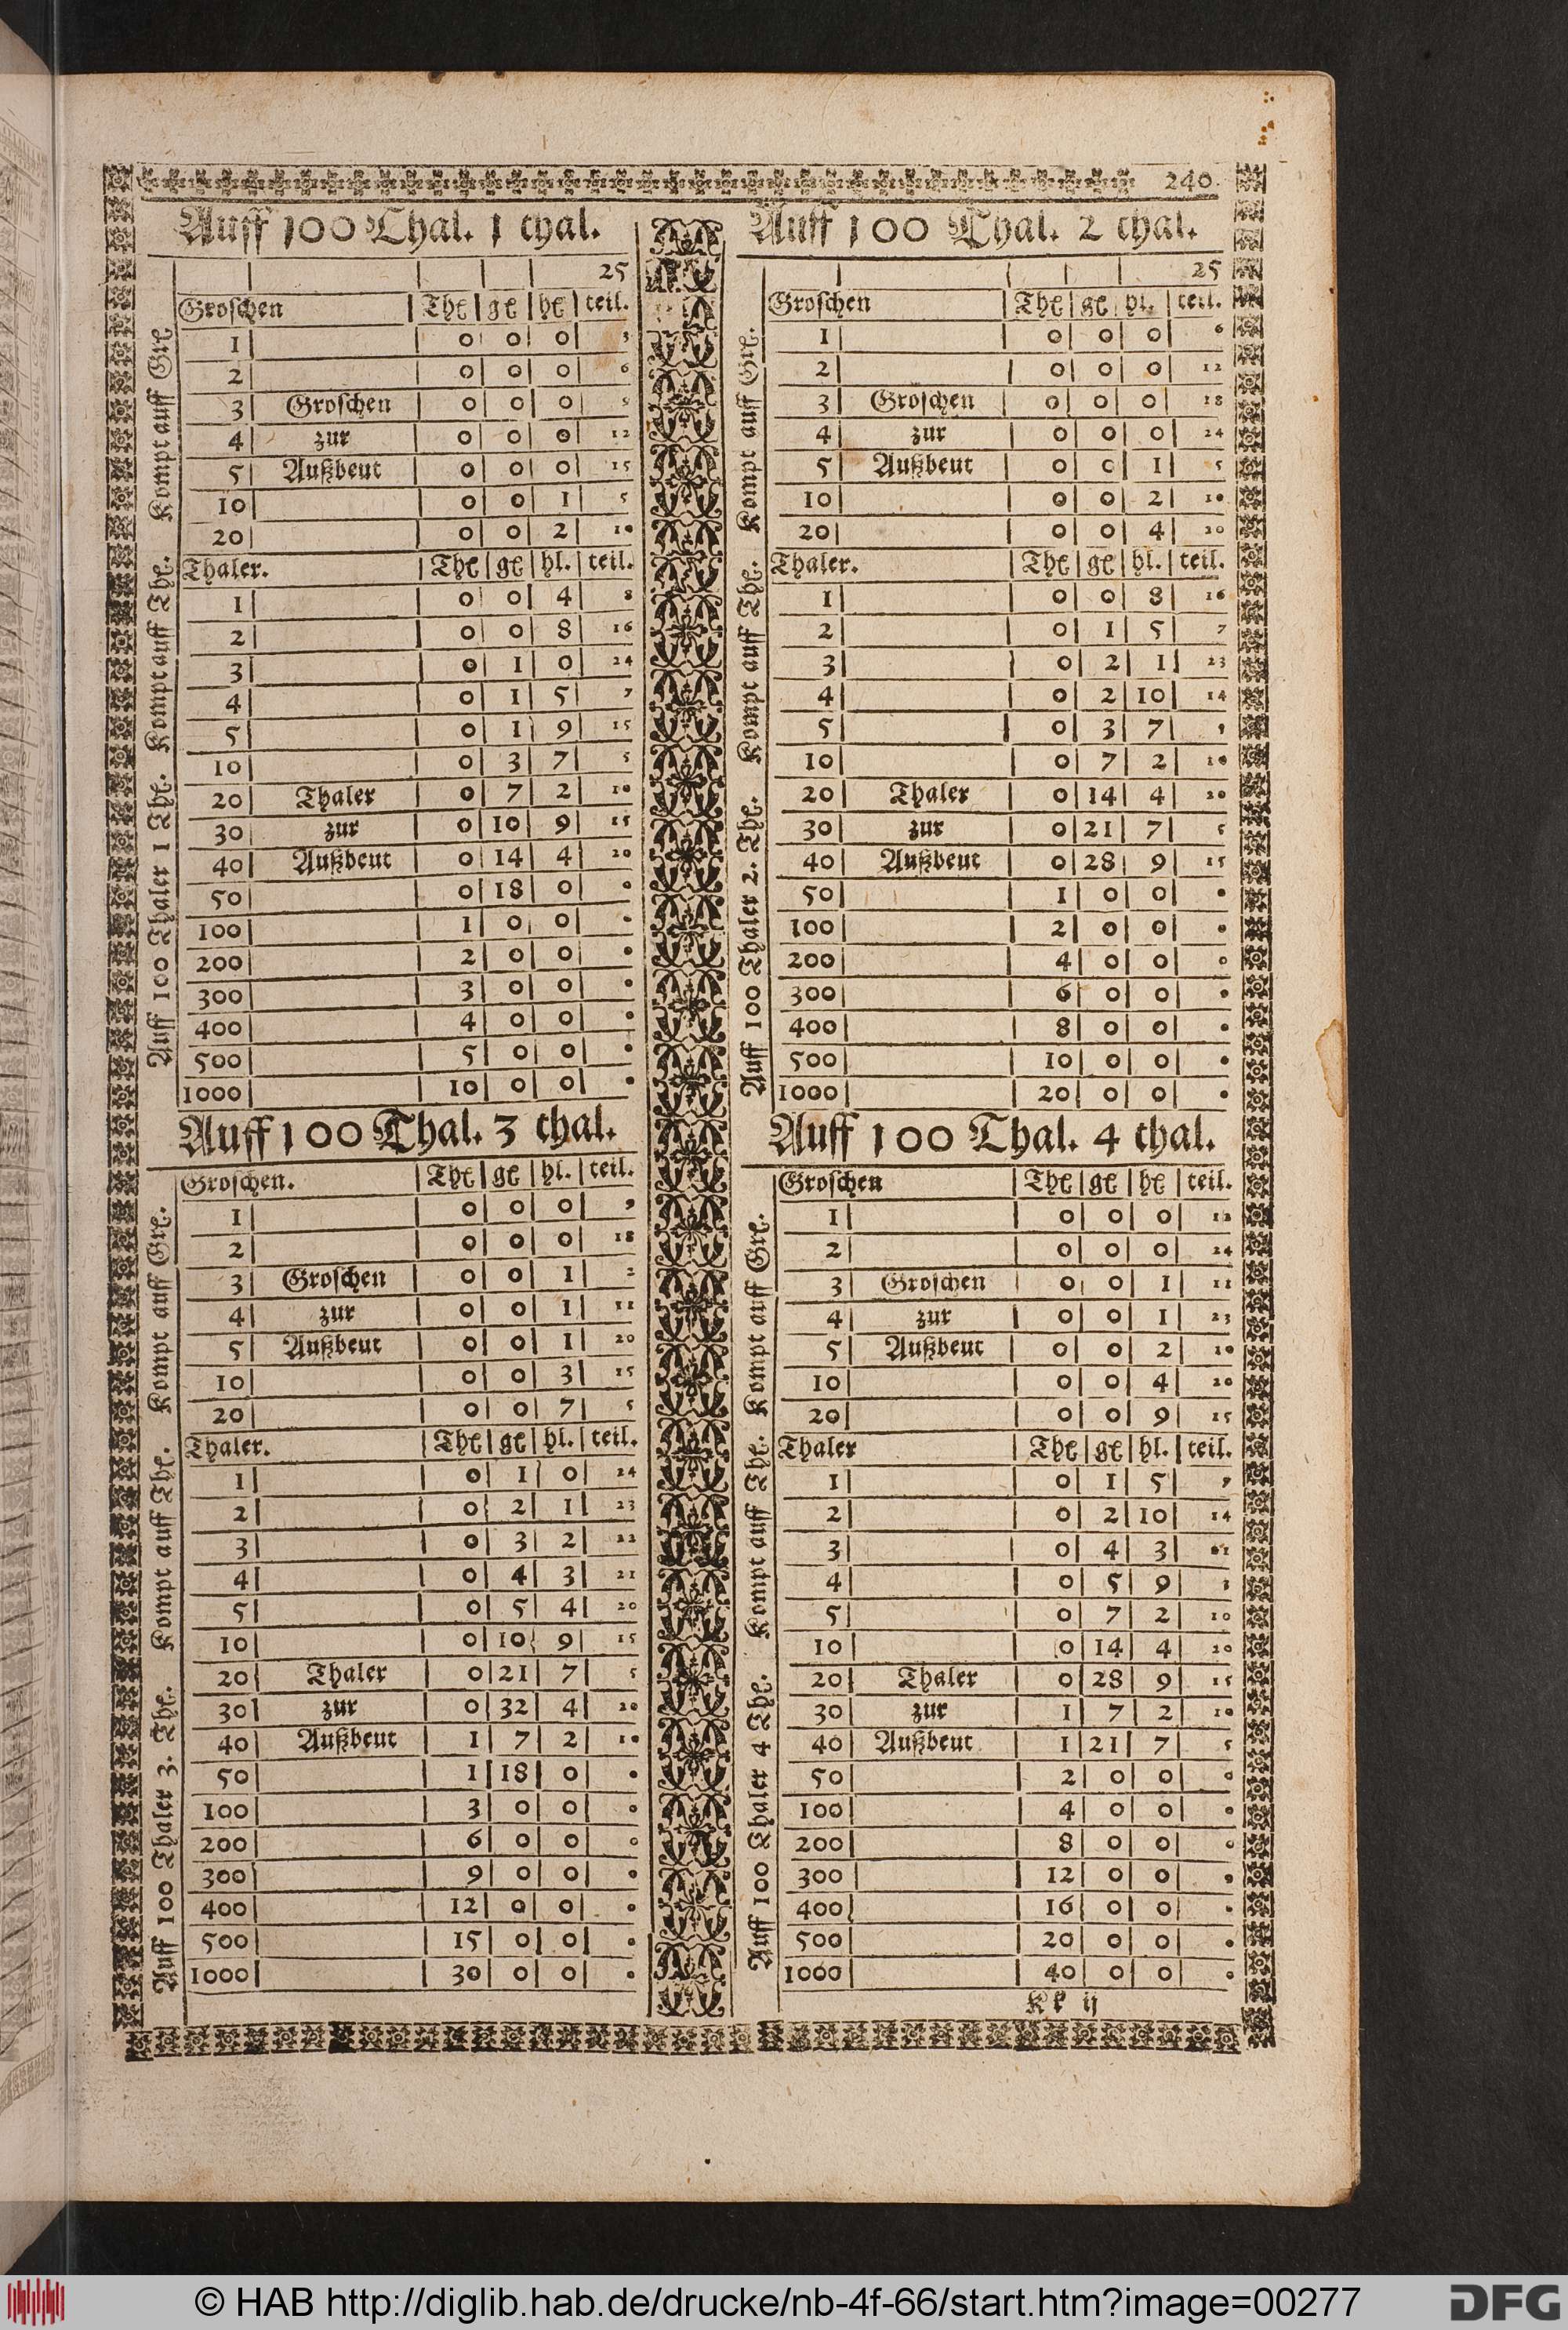 240.
Auff 100 Thal. 1 thal.
25
Groschen | Thl | gl | hl | teil.
1 | 0 | 0 | 0 | 3
2 | 0 | 0 | 0 | 6
3 | Groschen | 0 | 0 | 0 | 9
4 | zur | 0 | 0 | 0 | 12
5 | Außbeut | 0 | 0 | 0 | 15
10 | 0 | 0 | 1 | 5
20 | 0 | 0 | 2 | 10
Thaler. | Thl | gl | hl. | teil.
1 | 0 | 0 | 4 | 8
2 | 0 | 0 | 8 | 16
3 | 0 | 1 | 0 | 24
4 | 0 | 1 | 5 | 7
5 | 0 | 1 | 9 | 15
10 | 0 | 3 | 7 | 5
20 | Thaler | 0 | 7 | 2 | 10
30 | zur | 0 | 10 | 9 | 15
40 | Außbeut | 0 | 14 | 4 | 20
50 | 0 | 18 | 0 | 0
100 | 1 | 0 | 0 | 0
200 | 2 | 0 | 0 | 0
300 | 3 | 0 | 0 | 0
400 | 4 | 0 | 0 | 0
500 | 5 | 0 | 0 | 0
1000 | 10 | 0 | 0 | 0
Auff 100 Thaler 1 Thl. Kompt auff Thl. Kompt auff Grl
Auff 100 Thal. 2 thal.
25
Groschen | Thl | gl | hl. | teil.
1 | 0 | 0 | 0 | 6
2 | 0 | 0 | 0 | 12
3 | Groschen | 0 | 0 | 0 | 18
4 | zur | 0 | 0 | 0 | 24
5 | Außbeut | 0 | 0 | 1 | 5
10 | 0 | 0 | 2 | 10
20 | 0 | 0 | 4 | 20
Thaler. | Thl | gl | hl. | teil.
1 | 0 | 0 | 8 | 16
2 | 0 | 1 | 5 | 7
3 | 0 | 2 | 1 | 23
4 | 0 | 2 | 10 | 14
5 | 0 | 3 | 7 |
10 | 0 | 7 | 2 | 10
20 | Thaler | 0 | 14 | 4 | 20
30 | zur | 0 | 21 | 7 | 5
40 | Außbeut | 0 | 28 | 9 | 15
50 | 1 | 0 | 0 | 0
100 | 2 | 0 | 0 | 0
200 | 4 | 0 | 0 | 0
300 | 6 | 0 | 0 | 0
400 | 8 | 0 | 0 | 0
500 | 10 | 0 | 0 | 0
1000 | 20 | 0 | 0 | 0
Auff 100 Thaler 2. Thl. Kompt auff Thl. Kompt auff Grl.
Auff 100 Thal. 3 thal.
Groschen. | Thl | gl | hl. | teil.
1 | 0 | 0 | 0 | 9
2 | 0 | 0 | 0 | 18
3 | Groschen | 0 | 0 | 1 | 2
4 | zur | 0 | 0 | 1 | 11
5 | Außbeut | 0 | 0 | 1 | 20
10 | 0 | 0 | 3 | 15
20 | 0 | 0 | 7 | 5
Thaler. | Thl | gl | hl. | teil.
1 | 0 | 1 | 0 | 24
2 | 0 | 2 | 1 | 23
3 | 0 | 3 | 2 | 22
4 | 0 | 4 | 3 | 21
5 | 0 | 5 | 4 | 20
10 | 0 | 10 | 9 | 15
20 | Thaler | 0 | 21 | 7 | 5
30 | zur | 0 | 32 | 4 | 20
40 | Außbeut | 1 | 7 | 2 | 10
50 | 1 | 18 | 0 | 0
100 | 3 | 0 | 0 | 0
200 | 6 | 0 | 0 | 0
300 | 9 | 0 | 0 | 0
400 | 12 | 0 | 0 | 0
500 | 15 | 0 | 0 | 0
1000 | 30 | 0 | 0 | 0
Auff 100 Thaler 3. Thl. Kompt auff Thl. Kompt auff Grl.
Auff 100 Thal. 4 thal.
Groschen | Thl | gl | hl | teil.
1 | 0 | 0 | 0 | 12
2 | 0 | 0 | 0 | 24
3 | Groschen | 0 | 0 | 1 | 11
4 | zur | 0 | 0 | 1 | 23
5 | Außbeut | 0 | 0 | 2 | 10
10 | 0 | 0 | 4 | 20
20 | 0 | 0 | 9 | 15
Thaler | Thl | gl | hl. | teil.
1 | 0 | 1 | 5 | 7
2 | 0 | 2 | 10 | 14
3 | 0 | 4 | 3 |
4 | 0 | 5 | 9 | 3
5 | 0 | 7 | 2 | 10
10 | 0 | 14 | 4 | 20
20 | Thaler | 0 | 28 | 9 | 15
30 | zur | 1 | 7 | 2 | 10
40 | Außbeut | 1 | 21 | 7 | 5
50 | 2 | 0 | 0 | 0
100 | 4 | 0 | 0 | 0
200 | 8 | 0 | 0 | 0
300 | 12 | 0 | 0 | 0
400 | 16 | 0 | 0 | 0
500 | 20 | 0 | 0 | 0
1000 | 40 | 0 | 0 | 0
Auff 100 Thaler 4 Thl. Kompt auff Thl. Kompt auff Grl.
Kk ij
© HAB http://diglib.hab.de/drucke/nb-4f-66/start.htm?image=00277
DFG